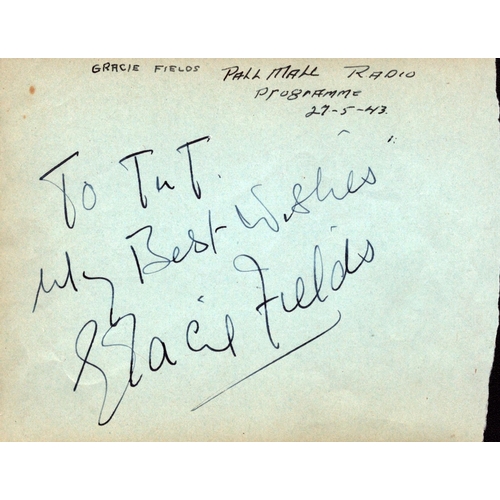 GRACIE FIELDS PALL MALL RADIO
PROGRAMME
27-5-43.
To TnT.
My Best Wishes
Gracie Fields